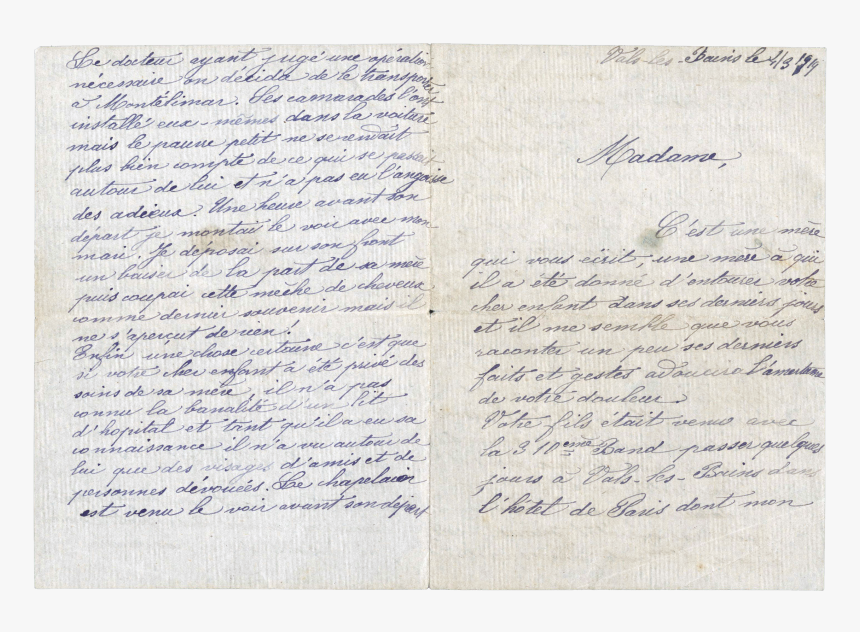 Le docteur ayant jugé une opération
nécessaire on décida de le transporter
à Montélimar. Ses camarades l'ont
installé eux-mêmes dans la voiture
mais le pauvre petit ne se rendait
plus bien compte de ce qui se passait
autour de lui et n'a pas eu l'angoisse
des adieux. Une heure avant son
départ je montai le voir avec mon
mari. Je déposai sur son front
un baiser de la part de sa mère
puis coupai cette mèche de cheveux
comme dernier souvenir mais il
ne s'aperçut de rien!
Enfin une chose certaine c'est que
si votre cher enfant a été privé des
soins de sa mère, il n'a pas
connu la banalité d'un lit
d'hopital et tant qu'il a eu sa
connaissance il n'a vu autour de
lui que des visages d'amis et de
personnes dévouées. Le chapelain
est venu le voir avant son départ
Vals-les-Bains le 1919
Madame,
C'est une mère
qui vous écrit, une mère à qui
il a été donné d'entourer votre
cher enfant dans ses derniers jours
et il me semble que vous
raconter un peu ses derniers
faits et gestes adoucira l'amertume
de votre douleur.
Votre fils était venu avec
la 310eme Band passer quelques
jours à Vals-les-Bains dans
l'hôtel de Paris dont mon